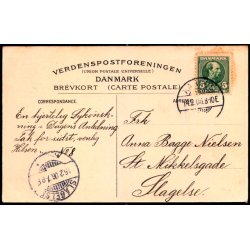 VERDENSPOSTFORENINGEN
(UNION POSTALE UNIVERSELLE)
DANMARK
BRÉVKORT (CARTE POSTALE)
CORRESPONDANCE.
En hjertelig Lykønsk-
ning i Dagens Anledning
Tak for sidst, venlig
Hilsen
Frk
Anna Bagge Nielsen
St Mikkelsgade
Slagelse.
5
5